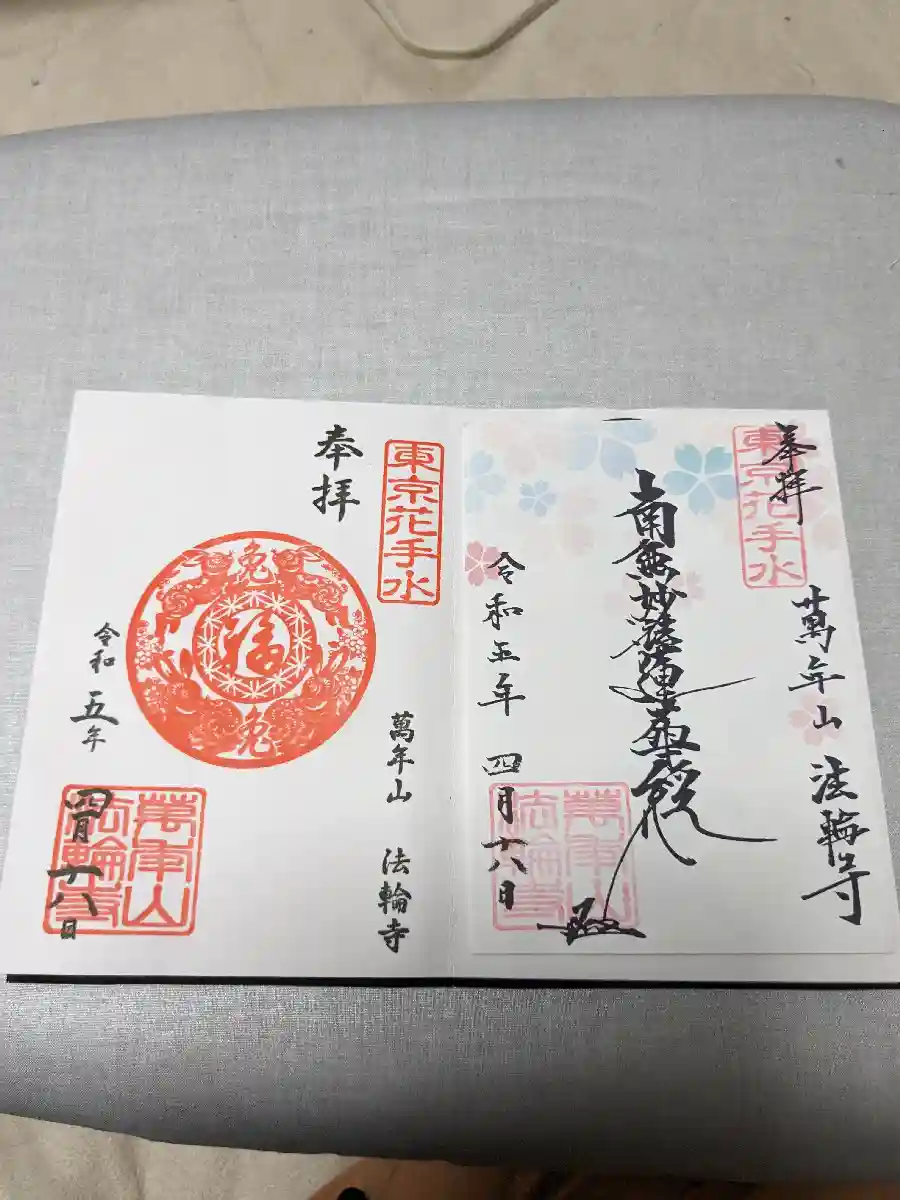 奉拝
東京花手水
萬年山 法輪寺
南無妙法蓮華経
令和五年 四月十八日
萬年山
法輪寺
東京花手水
奉拝
萬年山 法輪寺
兔
福
兔
令和五年
四月十八日
萬年山
法輪寺